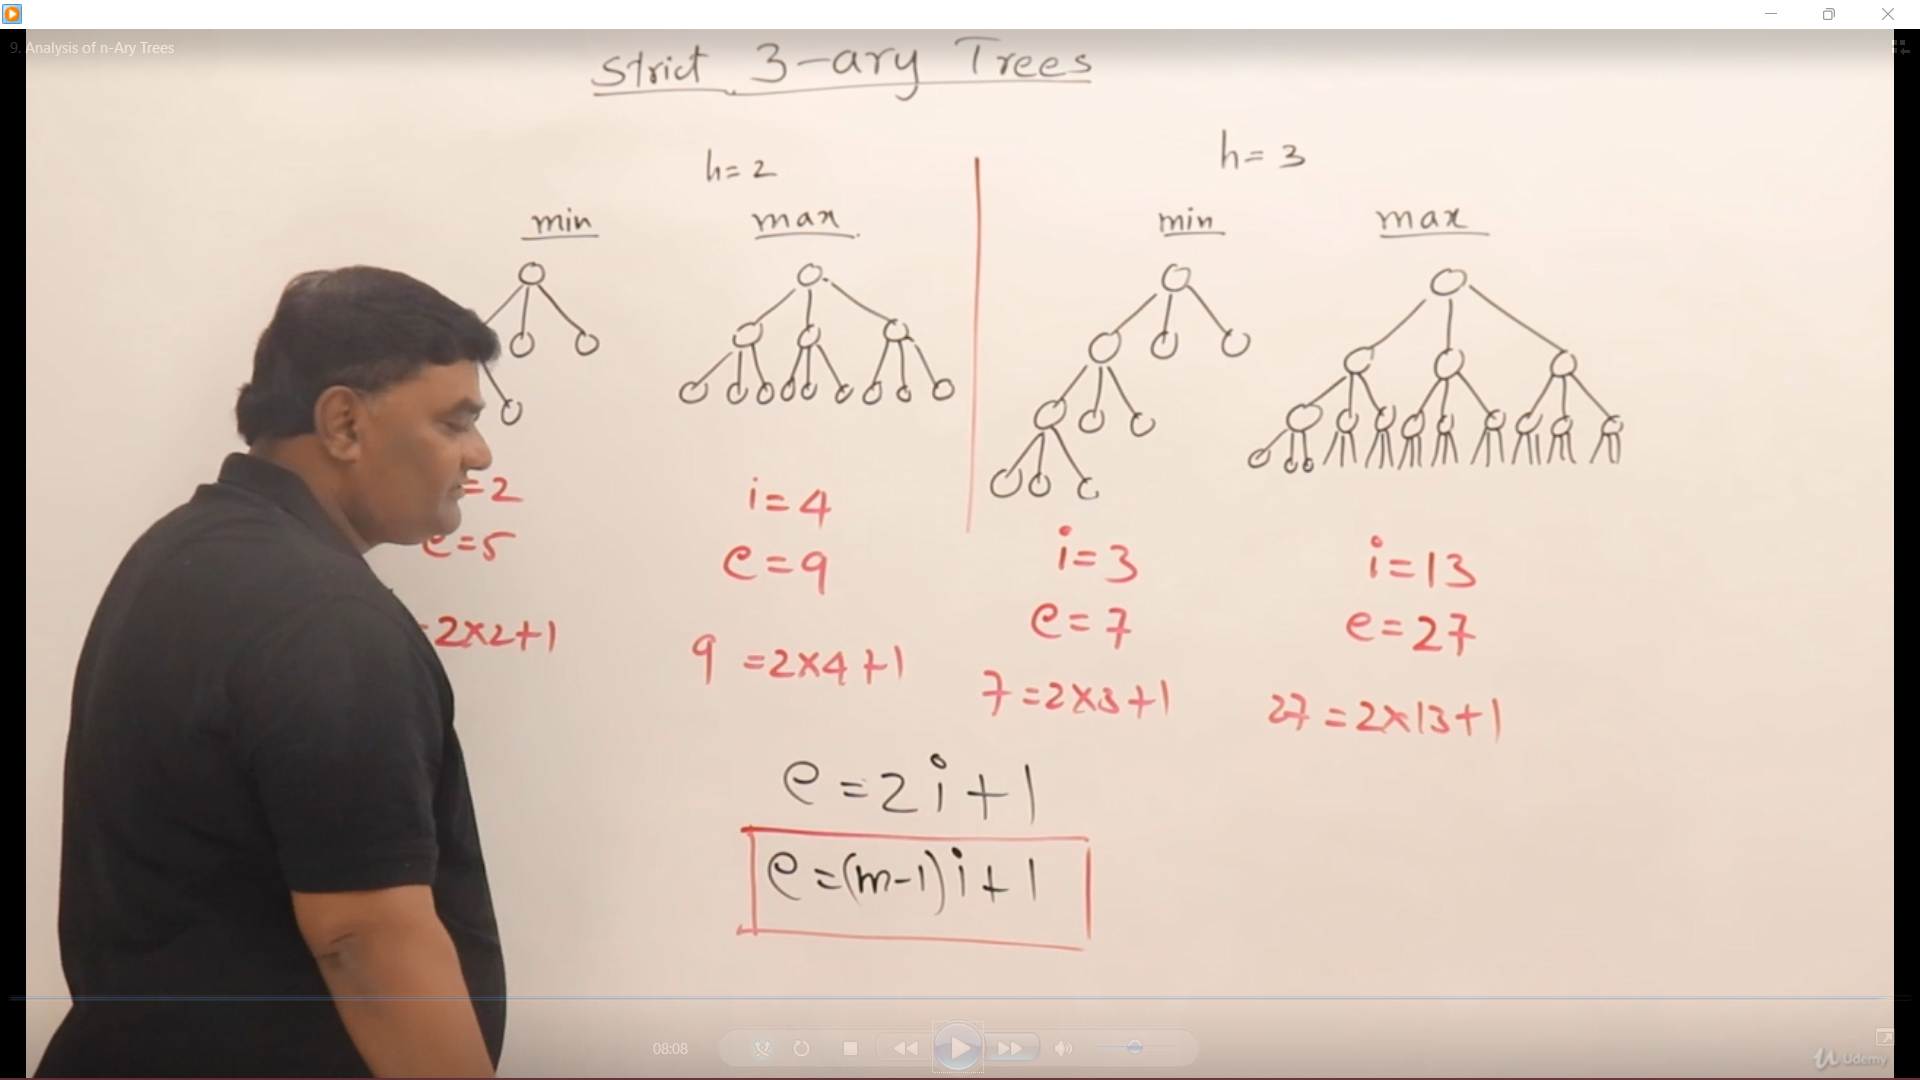 9. Analysis of n-Ary Trees
Strict 3-ary Trees
h=2
h=3
min
max
min
max
=2
e=5
=2×2+1
i=4
e=9
9 =2×4+1
i=3
e=7
7=2×3+1
i=13
e=27
27=2×13+1
e=2i+1
e=(m-1)i+1
08:08
Udemy